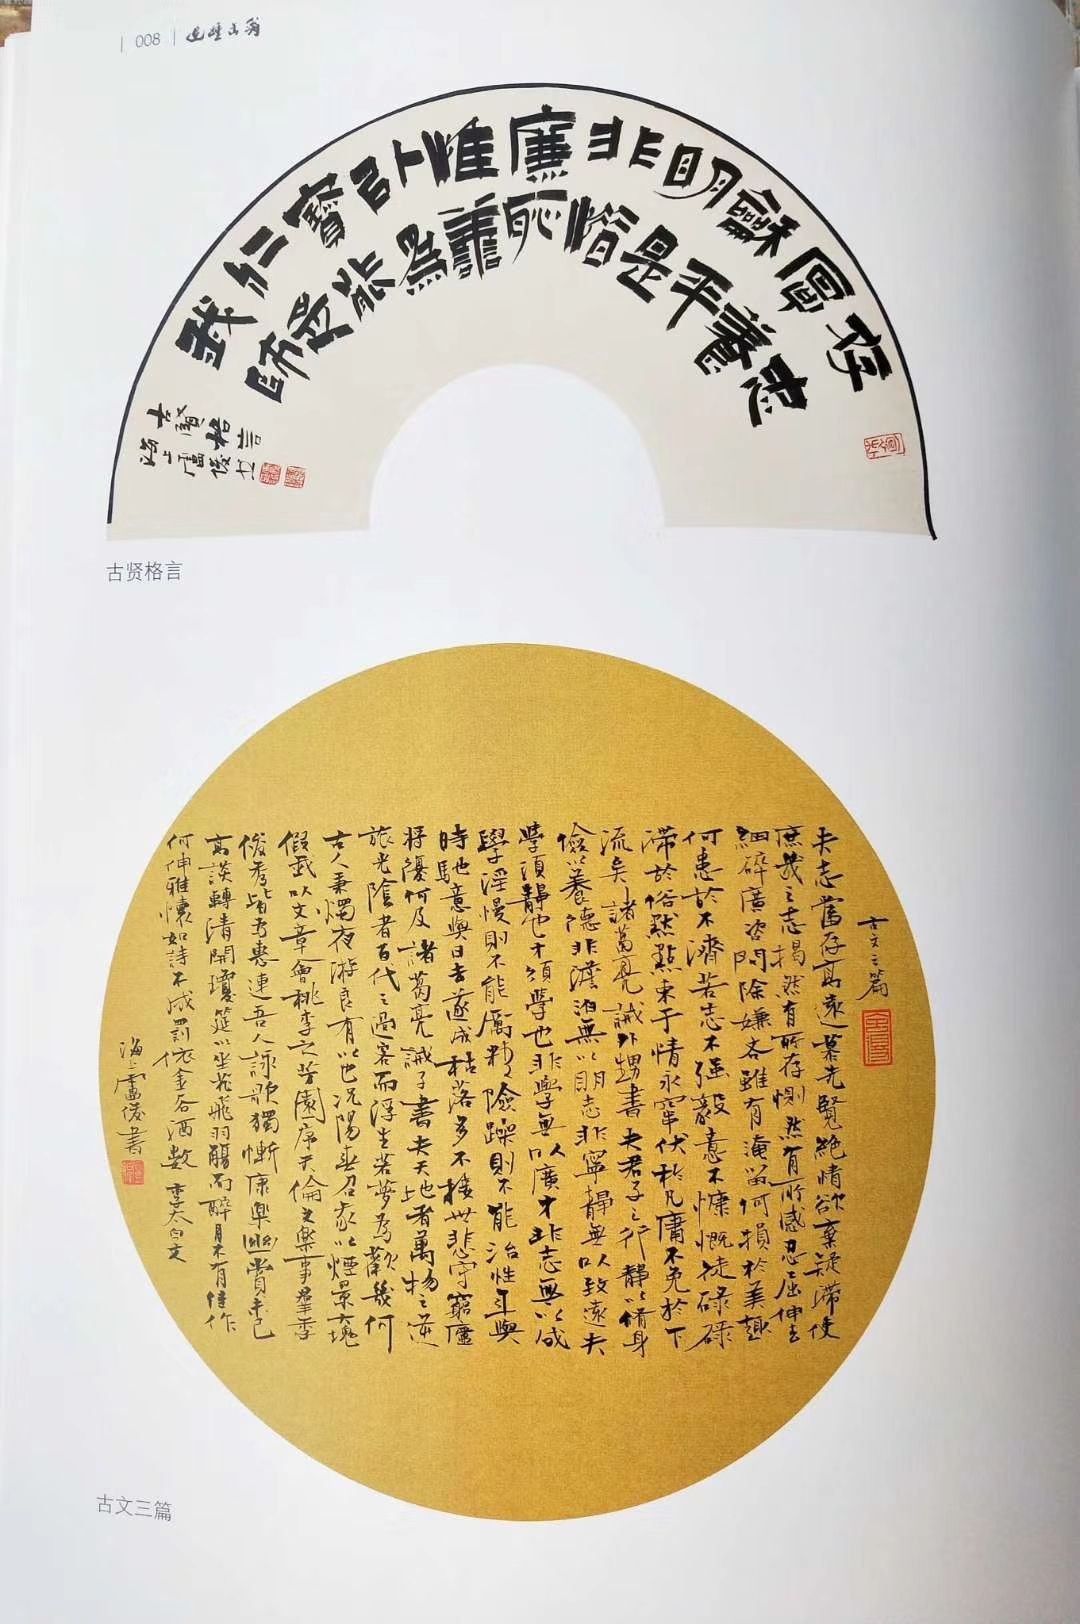 008
存忠
厚養
龢平
明是
非惜
廉恥
惟善
以爲
寶能
仁受
我師
古賢格言
海上盧俊
古贤格言
古文三篇
夫志當存高遠慕先賢絕情欲棄疑滯使
庶幾之志揭然有所存惻然有所感忍屈伸去
細碎廣咨問除嫌吝雖有淹留何損於美趣
何患於不濟若志不強毅意不慷慨徒碌碌
滯於俗默默束于情永竄伏於凡庸不免於下
流矣諸葛亮誡外甥書夫君子之行靜以脩身
儉以養德非澹泊無以明志非寧靜無以致遠夫
學須靜也才須學也非學無以廣才非志無以成
學淫慢則不能厲精險躁則不能治性年與
時馳意與日去遂成枯落多不接世悲守窮廬
將復何及諸葛亮誡子書夫天地者萬物之逆
旅光陰者百代之過客而浮生若夢為歡幾何
古人秉燭夜游良有以也況陽春召我以煙景大塊
假我以文章會桃李之芳園序天倫之樂事群季
俊秀皆為惠連吾人詠歌獨慚康樂幽賞未已
高談轉清開瓊筵以坐花飛羽觴而醉月不有佳作
何伸雅懷如詩不成罰依金谷酒數李太白文
海上盧俊書
古文三篇